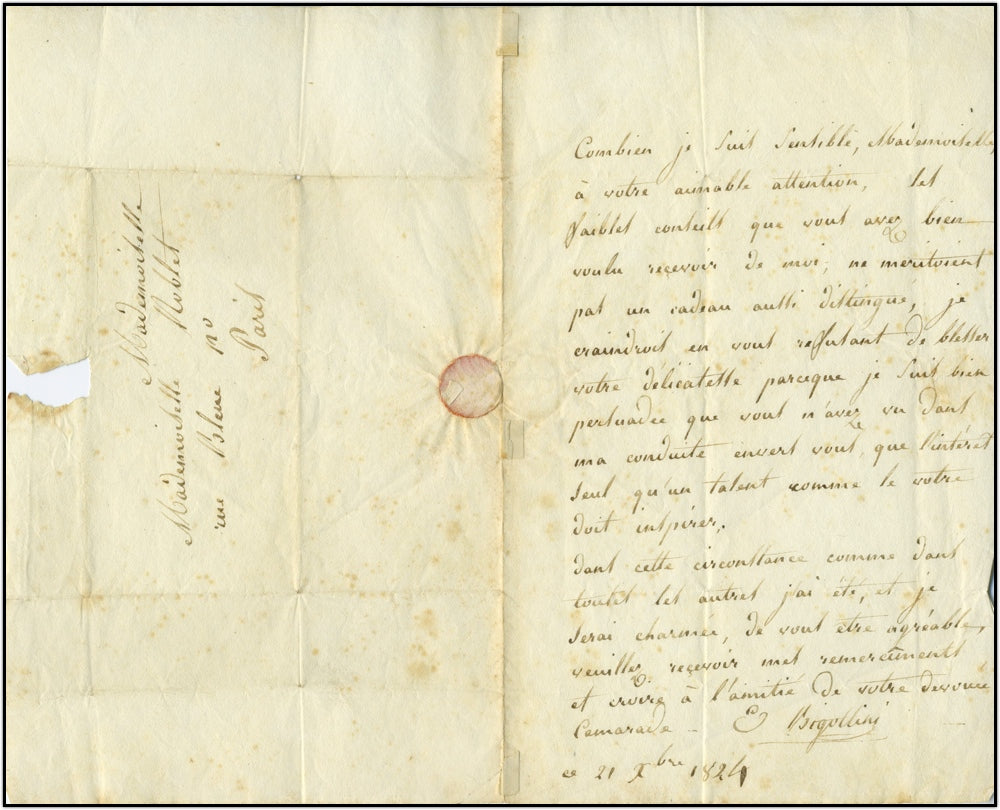 Mademoiselle
Mademoiselle Noblet
rue Bleue nº
Paris
Combien je suis sensible, Mademoiselle,
à votre aimable attention, les
faibles conseils que vous avez bien
voulu reçevoir de moi, ne meritoient
pas un cadeau aussi distingué, je
craindrois en vous reffusant de blesser
votre délicatesse parceque je suis bien
persuadée que vous n'avez vu dans
ma conduite envers vous, que l'intéret
seul qu'un talent comme le votre
doit inspirer.
dans cette circonstance comme dans
toutes les autres j'ai été, et je
serai charmée, de vous être agréable,
veuillez reçevoir mes remerciments
et croire à l'amitié de votre devouée
Camarade - E Bigottini
ce 21 Xbre 1824